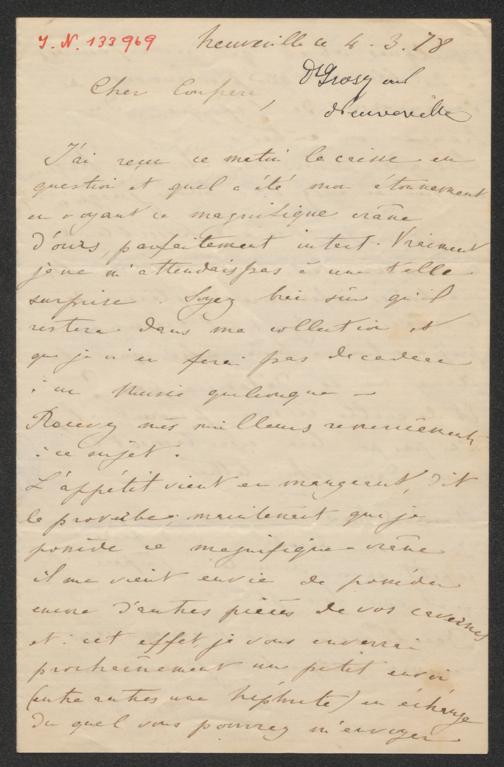 J. N. 133969
Neuveville le 4. 3. 78
Dr Gross
Neuveville
Cher Confrère,
J'ai reçu ce matin la caisse en
question et quel a été mon étonnement
en voyant ce magnifique crâne
d'ours, parfaitement intact. Vraiment
je ne m'attendais pas à une telle
surprise. Soyez bien sûr qu'il
restera dans ma collection et
que je n'en ferai pas de cadeau
à un Musée quelconque —
Recevez mes meilleurs remerciements
à ce sujet.
L'appétit vient en mangeant, dit
le proverbe; maintenant que je
possède ce magnifique crâne
il me vient envie de posséder
encore d'autres pièces de vos cavernes
et à cet effet je vous enverrai
prochainement un petit envoi
(entre autres une néphrite) en échange
du quel vous pourrez m'envoyer